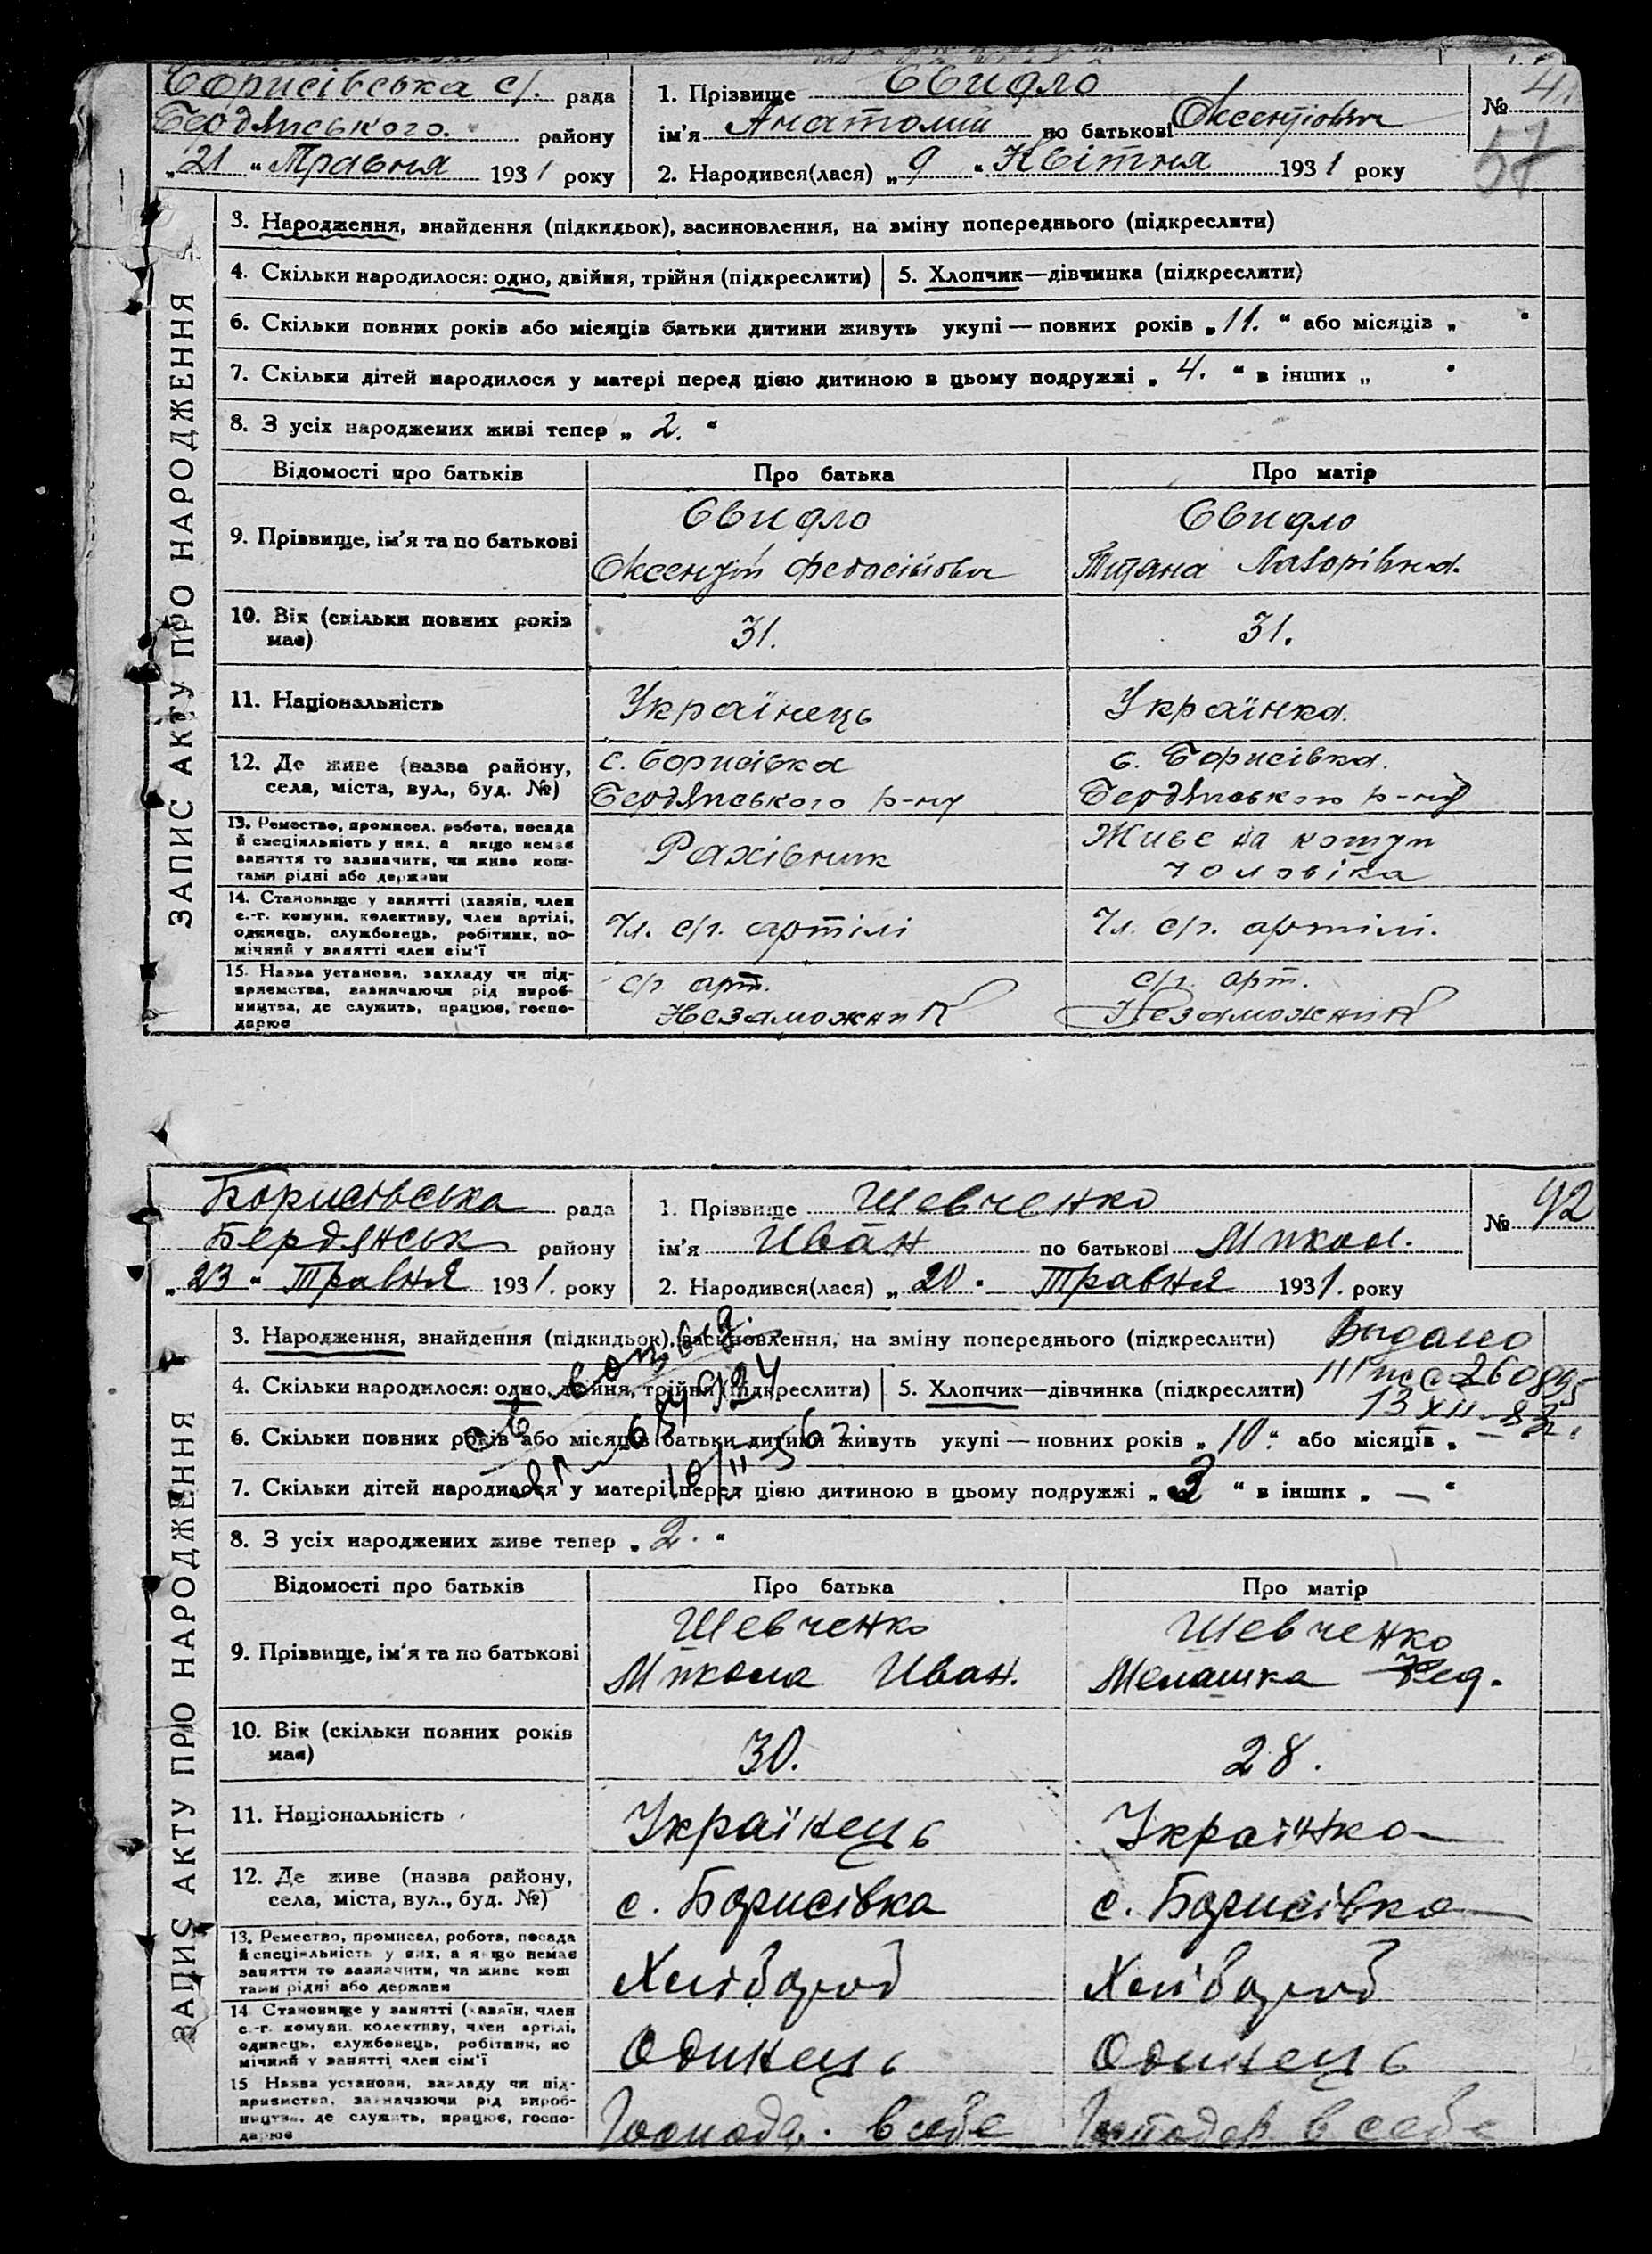 Борисівська с/. рада
Бердянського. району
„21“ Травня 1931 року
1. Прізвище Євидло
ім'я Анатолий по батькові Оксентіович
2. Народився(лася) „9“ Квітня 1931 року
№ 41
57
ЗАПИС АКТУ ПРО НАРОДЖЕННЯ
3. Народження, знайдення (підкидьок), засиновлення, на зміну попереднього (підкреслити)
4. Скільки народилося: одно, двійня, трійня (підкреслити)
5. Хлопчик—дівчинка (підкреслити)
6. Скільки повних років або місяців батьки дитини живуть укупі — повних років „11.“ або місяців „ “
7. Скільки дітей народилося у матері перед цією дитиною в цьому подружжі „4.“ в інших „ “
8. З усіх народжених живі тепер „2.“
Відомості про батьків Про батька Про матір
9. Прізвище, ім'я та по батькові
Євидло
Оксентій
Євидло
Тетяна
10. Вік (скільки повних років має)
31.
31.
11. Національність
Українець
Українка.
12. Де живе (назва району, села, міста, вул., буд. №)
с. Борисівка
Бердянського р-ну
с. Борисівка.
Бердянського р-ну
13. Ремество, промисел, робота, посада
й спеціяльність у них, а якщо немає
заняття то зазначити, чи живе кош-
тами рідні або держави
Рахівник
Живе на кошти
чоловіка
14. Становище у занятті (хазяїн, член
с.-г. комуни, колективу, член артілі,
одинець, службовець, робітник, по-
мічний у занятті член сім'ї
Чл. с/г. артілі
Чл. с/г. артілі.
15. Назва установи, закладу чи під-
приємства, зазначаючи рід вироб-
ництва, де служить, працює, госпо-
дарює
с/г. арт.
Незаможник
с/г. арт.
Незаможник
Борисівська рада
Бердянськ району
„23“ Травня 1931. року
1. Прізвище Шевченко
ім'я Иван по батькові Микол.
2. Народився(лася) „20. Травня 1931. року
№ 42
ЗАПИС АКТУ ПРО НАРОДЖЕННЯ
3. Народження, знайдення (підкидьок), засиновлення, на зміну попереднього (підкреслити)
Видано
4. Скільки народилося: одно, двійня, трійня (підкреслити)
5. Хлопчик—дівчинка (підкреслити)
6. Скільки повних років або місяців батьки дитини живуть укупі — повних років „10.“ або місяців „—“
7. Скільки дітей народилося у матері перед цією дитиною в цьому подружжі „3“ в інших „—“
8. З усіх народжених живе тепер „2.“
Відомості про батьків Про батька Про матір
9. Прізвище, ім'я та по батькові
Шевченко
Микола Иван.
Шевченко
Мелашка Фед.
10. Вік (скільки повних років має)
30.
28.
11. Національність
Українець
Українка
12. Де живе (назва району, села, міста, вул., буд. №)
с. Борисівка
с. Борисівка
13. Ремество, промисел, робота, посада
й спеціяльність у них, а якщо немає
заняття то зазначити, чи живе кош
тами рідні або держави
Хлібороб
Хлібороб
14 Становище у занятті (хазяїн, член
с.-г. комуни, колективу, член артілі,
одинець, службовець, робітник, по
мічний у занятті член сім'ї
Одинець
Одинець
15 Назва установи, закладу чи під-
приємства, зазначаючи рід вироб-
ництва, де служить, працює, госпо-
дарює
Господар. в себе
Господар в себе